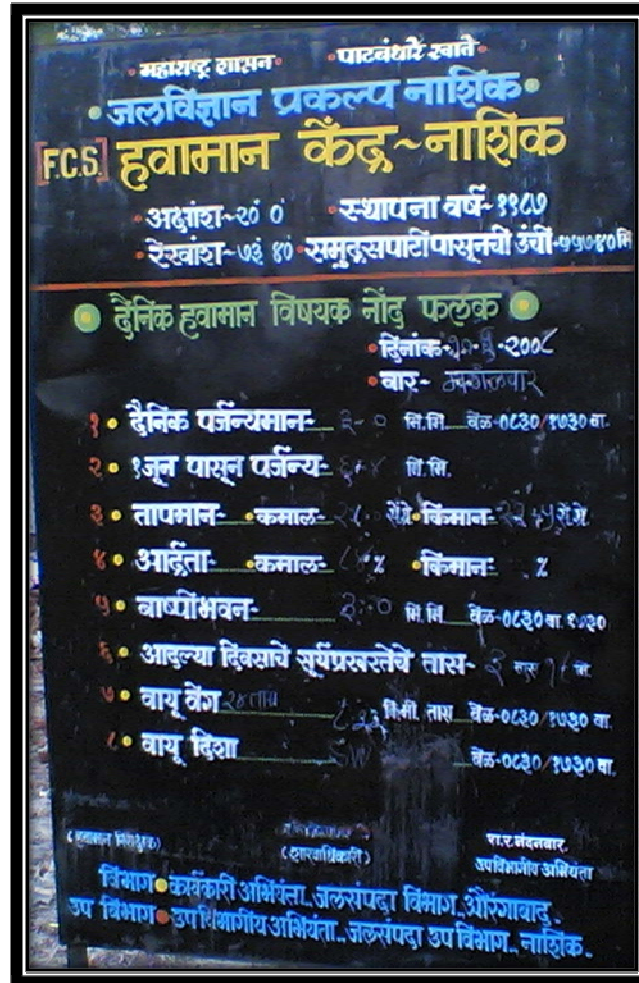 महाराष्ट्र शासन पाटबंधारे खाते
जलविज्ञान प्रकल्प नाशिक
[F.C.S.] हवामान केंद्र~नाशिक
अक्षांश~२० ० स्थापना वर्षे-१९८७
रेखांश-७३ ४० समुद्रसपाटीपासूनची उंची-५५७४० मि
दैनिक हवामान विषयक नोंद फलक
दिनांक- -२००८
वार-
१ दैनिक पर्जन्यमान- मि.मि. वेळ-०८३०/१७३० वा.
२ १जून पासून पर्जन्य- मि.मि.
३ तापमान- कमाल- सें.ग्रे. किमान- सें.ग्रे.
४ आर्द्रता- कमाल- % किमान- %
५ बाष्पीभवन- मि.मि वेळ-०८३० वा. १७३०
६ आदल्या दिवसाचे सूर्यप्रखरतेचे तास- ३ तास
७ वायू वेग २४ तास कि.मी. तास वेळ-०८३०/१७३० वा.
८ वायू दिशा SW वेळ-०८३०/१७३० वा.
(हवामान निरीक्षक) (शाखाधिकारी) पा.र.नंदनवार.
उपविभागीय अभियंता
विभाग कार्यकारी अभियंता.. जलसंपदा विभाग..औरंगाबाद..
उप विभाग उप विभागीय अभियंता.. जलसंपदा उप विभाग.. नाशिक..